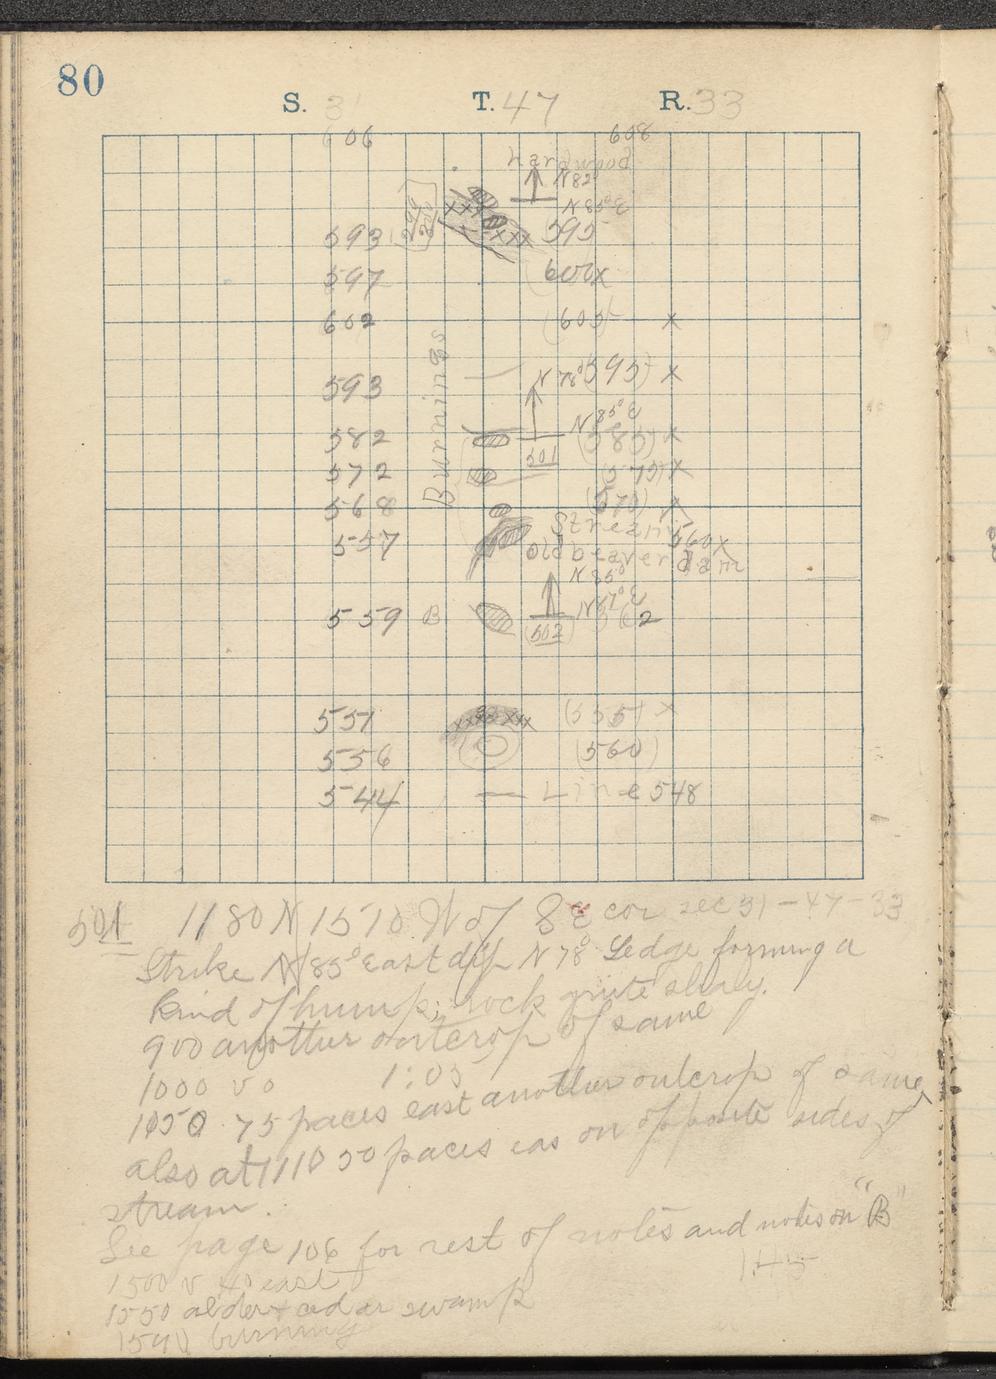 80
S. 31 T. 47 R. 33
606 608
hardwood
N 82°
N 85° E
593 595
597 601 x
602 (605) x
Burnings
593 N 78° (595) x
N 85° E
582 (585) x
501
572 (575) x
568 (570) x
Stream
557 560 x
Old beaver dam
N 85°
N 87° E
559 B 562
(502)
551 (555) x
556 (560)
544 — Line 548
501 1180 N 1510 W of SE cor sec 31-47-33
Strike N 85° East dip N 78° Ledge forming a
kind of hump; rock quite slaty.
900 another outcrop of same
1000 v o 1:05
1050 75 paces east another outcrop of same,
also at 1110 50 paces eas on opposite sides of
stream.
See page 106 for rest of notes and notes on "B"
1500 v east 1:45
1550 alder + cedar swamp
1590 burning